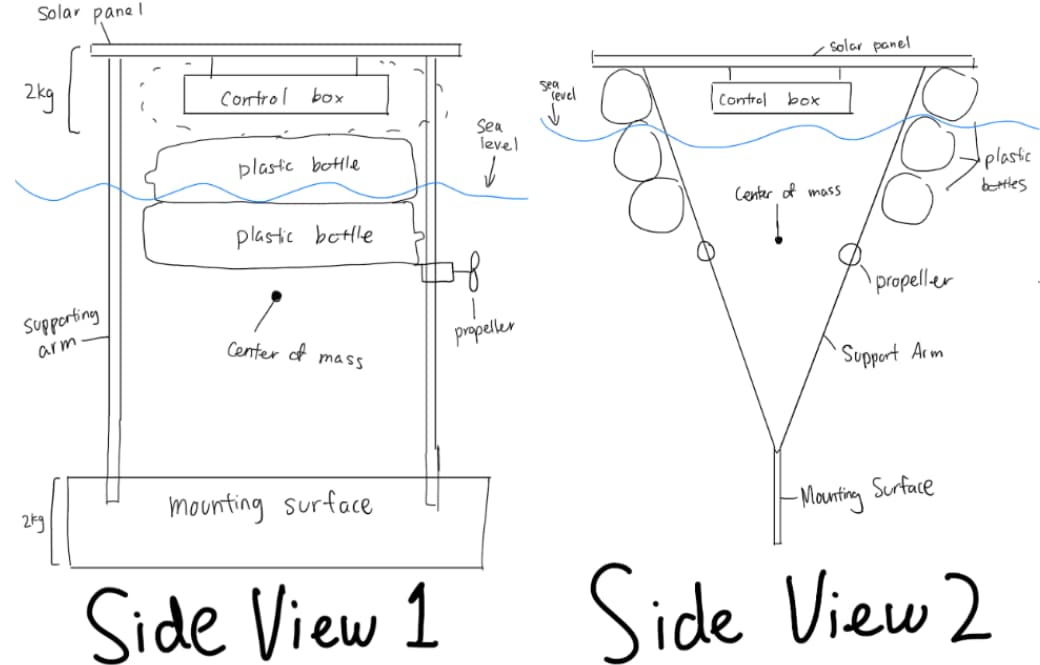 Solar panel
2kg
Control box
plastic bottle
sea
level
plastic bottle
supporting
arm
Center of mass
propeller
2kg
mounting surface
Side View 1
solar panel
sea
level
Control box
plastic
bottles
Center of mass
propeller
Support Arm
Mounting Surface
Side View 2